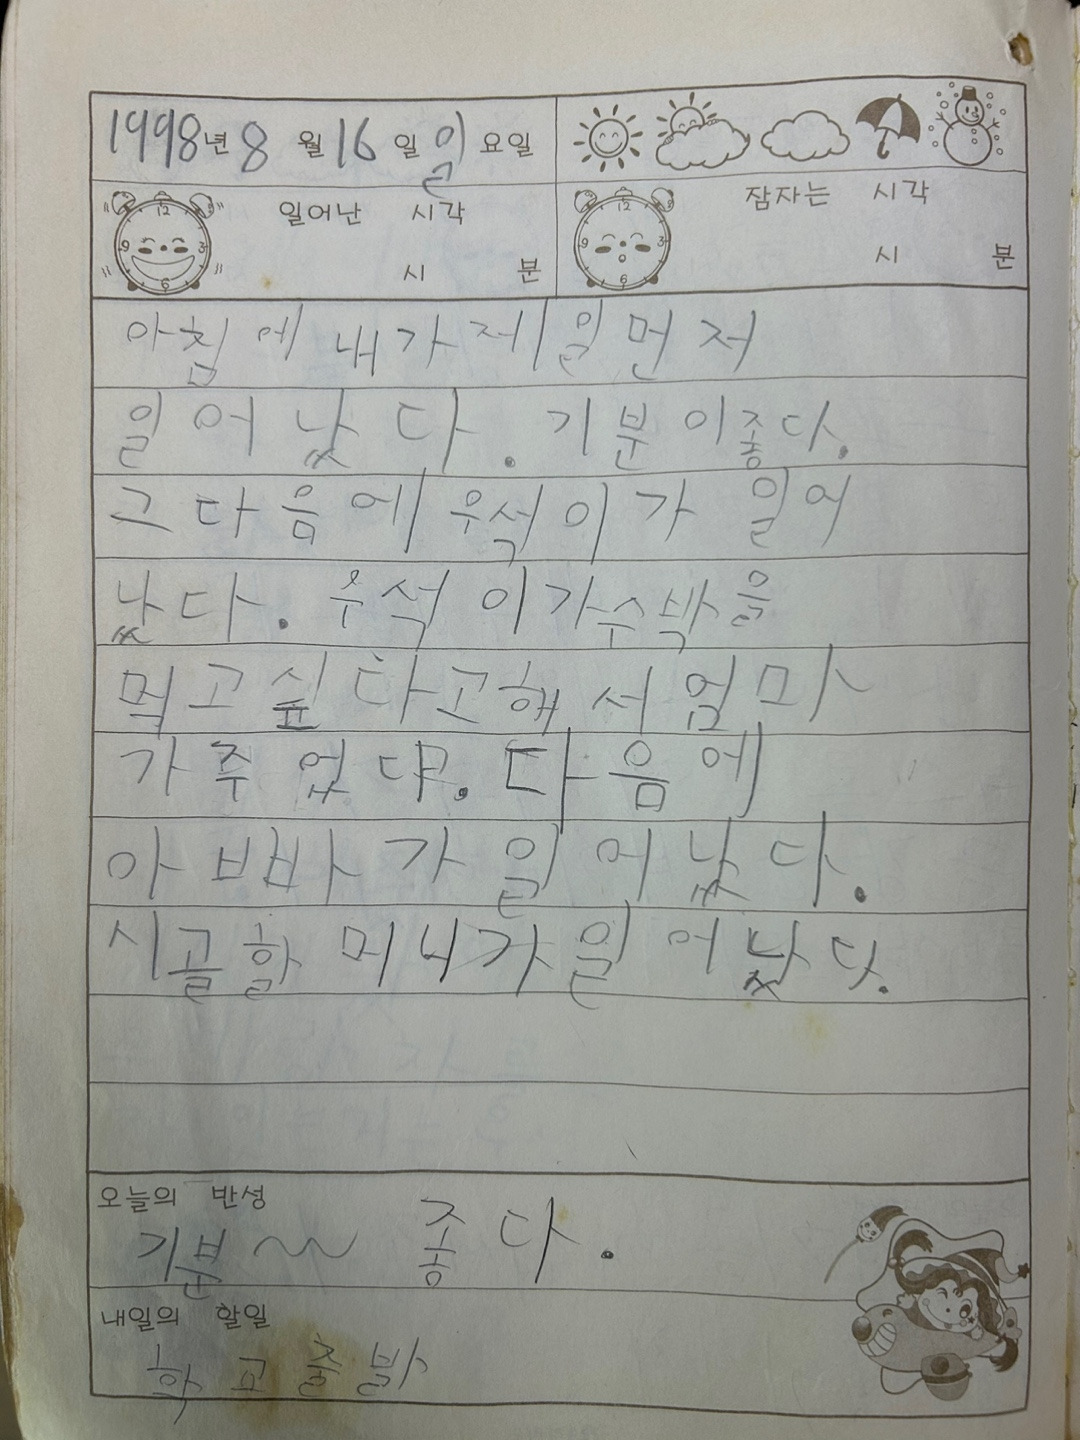 1998년 8 월 16 일 일 요일
일어난 시각
시 분
잠자는 시각
시 분
아침에 내가 제일 먼저
일어났다. 기분이 좋다.
그다음에 우석이가 일어
났다. 우석이가 수박을
먹고싶다고해서 엄마
가 주었다. 다음에
아빠가 일어났다.
시골할머니가 일어났다.
오늘의 반성
기분~~ 좋다.
내일의 할일
학교출발